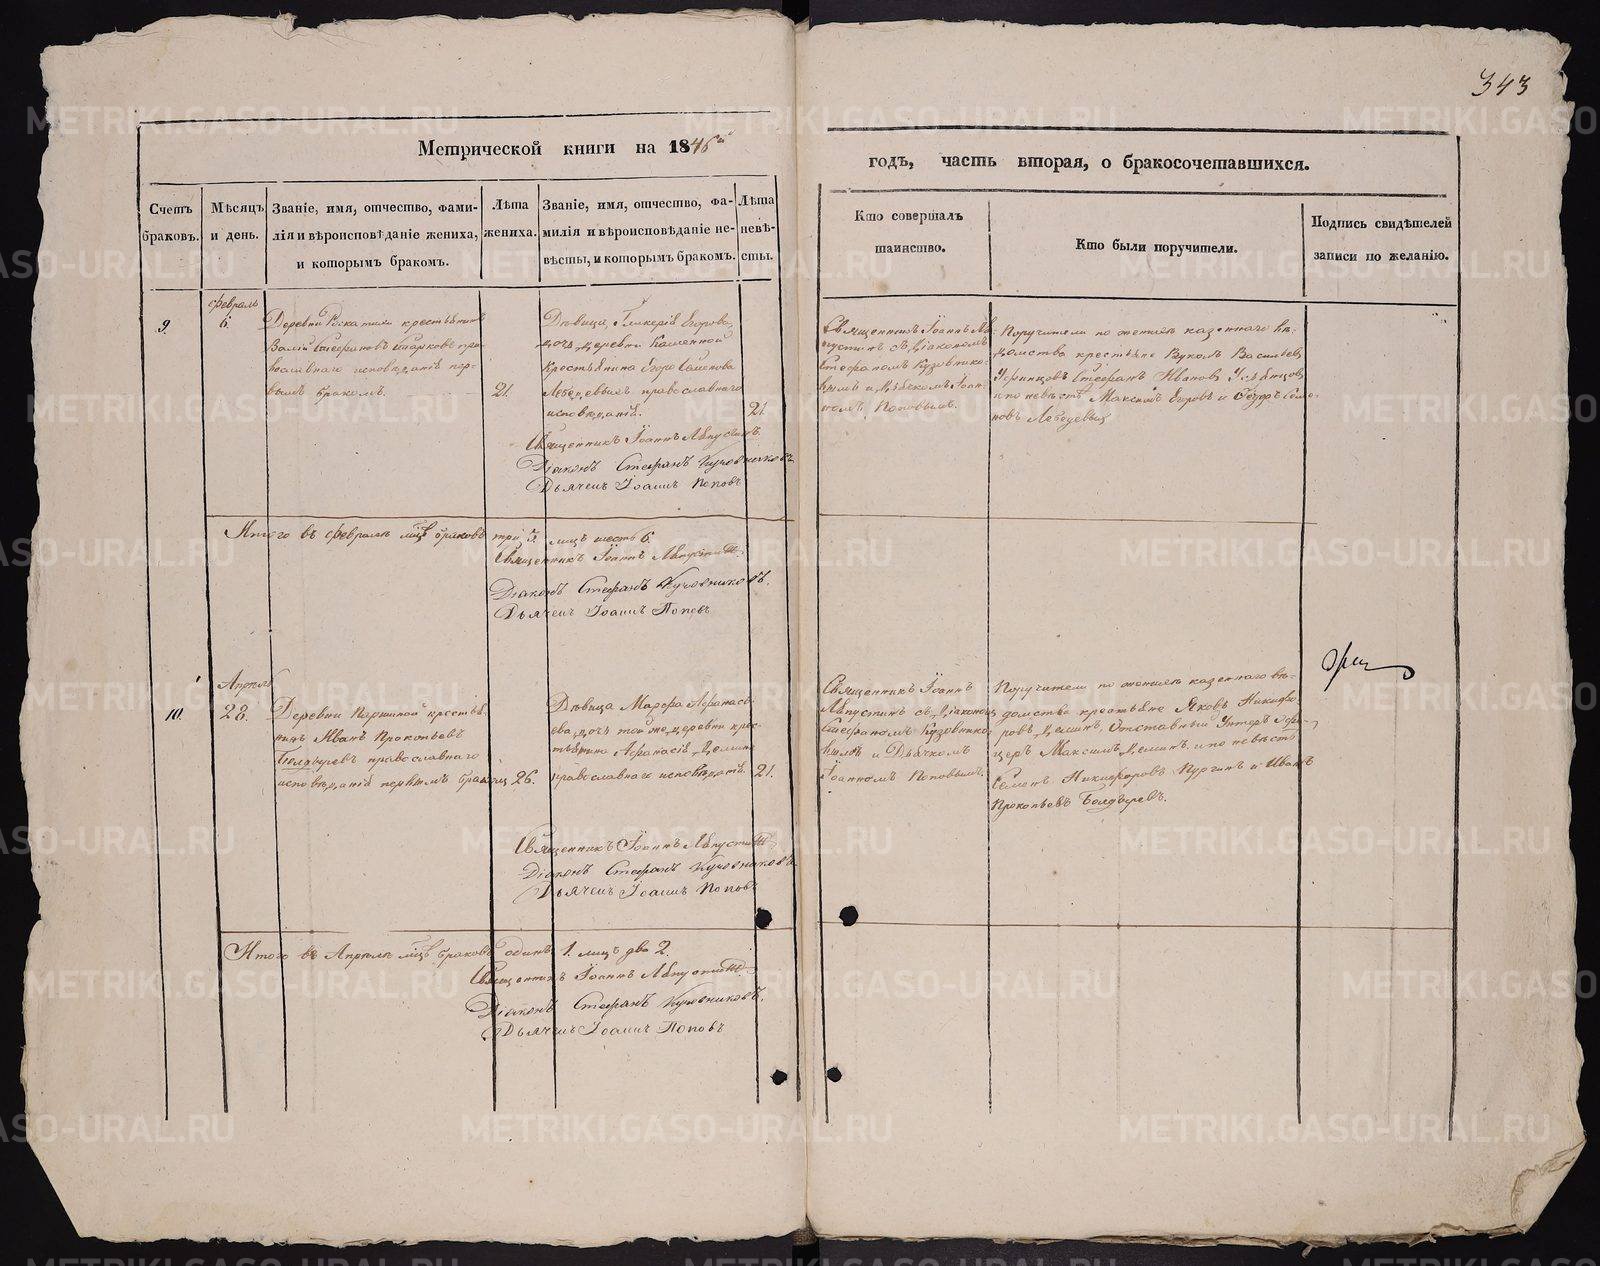 343
Метрической книги на 1846й
годъ, часть вторая, о бракосочетавшихся.
Счетъ браковъ.
Мѣсяцъ и день.
Званіе, имя, отчество, фами-
лія и вѣроисповѣданіе жениха,
и которымъ бракомъ.
Лѣта
жениха.
Званіе, имя, отчество, фа-
милія и вѣроисповѣданіе не-
вѣсты, и которымъ бракомъ.
Лѣта
невѣ-
сты.
Кто совершалъ
таинство.
Кто были поручители.
Подпись свидѣтелей
записи по желанію.
9.
февраль
6.
Деревни крестьянинъ
Стефановъ пра-
вославнаго исповѣданія пер-
вымъ бракомъ.
21.
Дѣвица, Гликерія Егорова,
дочь деревни Каменной
крестьянина Егора Семенова
Лебедевыхъ православнаго
исповѣданія.
21.
Священникъ Іоаннъ Авгу-
стинъ съ Діакономъ
Стефаномъ Кузовнико-
вымъ и Дьячкомъ Іоан-
номъ Поповымъ.
Поручители по женихѣ казеннаго вѣ-
домства крестьяне Вуколъ Васильевъ
Стефанъ Ивановъ
и по невѣстѣ Максимъ Егоровъ и Семе-
новъ Лебедевы
Священникъ Іоаннъ Августинъ.
Діаконъ Стефанъ Кузовниковъ
Дьячекъ Іоаннъ Поповъ
Итого въ февралѣ мцѣ браковъ три 3. лицъ шесть 6.
Священникъ Іоаннъ Августинъ.
Діаконъ Стефанъ Кузовниковъ.
Дьячекъ Іоаннъ Поповъ
10.
Апрель
28.
Деревни Паршиной крестья-
нинъ Иванъ Прокопьевъ
Болдыревъ православнаго
исповѣданія первымъ бракомъ
26.
Дѣвица Марфа Афанась-
ева, дочь той же деревни крес-
тьянина Афанасія Демина
православнаго исповѣданія.
21.
Священникъ Іоаннъ
Августинъ съ Діакономъ
Стефаномъ Кузовнико-
вымъ и Дьячкомъ
Іоанномъ Поповымъ.
Поручители по женихѣ казеннаго вѣ-
домства крестьяне Яковъ Никифо-
ровъ Деминъ, Отставный Унтеръ Офи-
церъ Максимъ Деминъ, и по невѣстѣ
Семенъ Никифоровъ Пургинъ и Иванъ
Прокопьевъ Болдыревъ.
Священникъ Іоаннъ Августинъ.
Діаконъ Стефанъ Кузовниковъ
Дьячекъ Іоаннъ Поповъ
Итого въ Апрелѣ мцѣ браковъ одинъ 1. лицъ два 2.
Священникъ Іоаннъ Августинъ.
Діаконъ Стефанъ Кузовниковъ.
Дьячекъ Іоаннъ Поповъ
METRIKI.GASO-URAL.RU